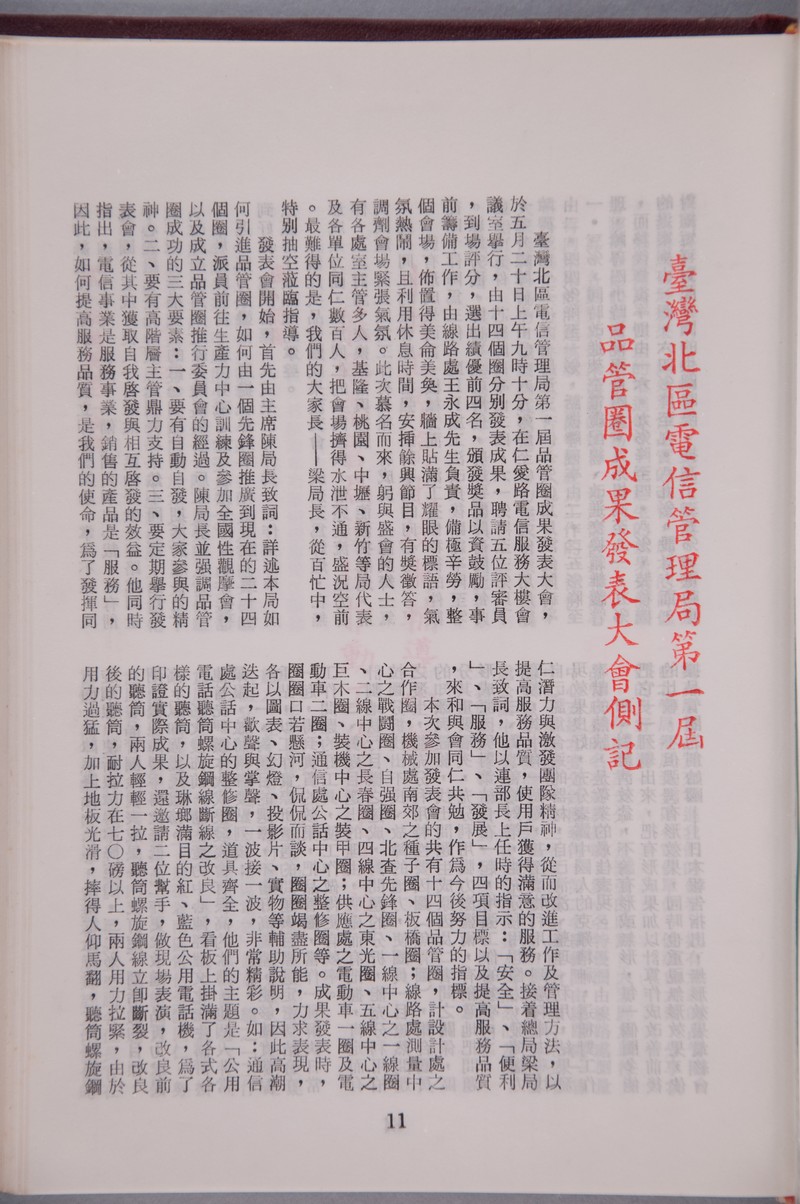 臺灣北區電信管理局第一屆
品管圈成果發表大會側記
臺灣北區電信管理局第一屆品管圈成果發表大會，
於五月二十日上午九時十分，在仁愛路電信服務大樓會
議室舉行，由十四個圈分別發表成果，聘請五位評審員
，到場評分，選出績優前四名，頒發獎品以資鼓勵，事
前籌備工作，由線路處王永成先生負責，備極辛勞，整
個會場，佈置得美侖美奐，牆上貼滿了耀眼的標語，氣
氛熱鬧，且利用休息時間，安揷餘興節目，有獎徵答，
調劑會場緊張氣氛。此次慕名而來，躬與盛會的人士，
有各處室主管多人，基隆、桃園、中壢、新竹等局代表
及各單位同仁數百人，把會場擠得水泄不通，盛況空前
。最難得的是，我們的大家長——梁局長，從百忙中，
特別抽空蒞臨指導。
發表會開始，首先由主席陳局長致詞：詳述本局如
何引進品管圈，如何由一個先鋒圈推廣到現在的二十四
個圈，派員前往生產力中心訓練及參加全國性觀摩會，
以及成立品管圈推行委員會的經過。陳局長並强調品管
圈成功的三大要素：一、要有自動自發，大家參與的精
神。二、要有高階層主管鼎力支持。三、要定期舉行發
表會，從其中獲取自我啓發與相互啓發的效益。他同時
指出，電信事業是服務事業，銷售的產品是「服務」，
因此，如何提高服務品質，是我們的使命，爲了發揮同
仁潛力與激發團隊精神，從而改進工作及管理方法，以
提高服務品質，使用戶獲得滿意的服務。接着總局梁局
長致詞，他以連部長上任時的指示：「安全」、「便利
」、「服務」、「發展」，四項目標以及提高服務品質
，來和與會同仁共勉，作爲今後努力的指標。
本次參加發表會的共有十四個品管圈，計設計處之
合作圈，機械處南郊之種子圈、板橋圈；線路處測量中
心之戰鬪圈、自强圈、北查先鋒圈、一線中心之一線圈
、二線中心之長春圈、四線中心之東光圈、五線中心之
巨木圈、裝機中心之裝甲圈；供應處之電動車一圈及電
動車二圈；通信處公話中心之整修圈等。成果發表時，
圈圈口若懸河，侃侃而談，圈圈竭盡所能，力求表現，
各以圖表、幻燈、投影片、實物等輔助說明，因此高潮
迭起，歡聲與掌聲，一波接一波，非常精彩。如：通信
處公話中心的整修圈，道具齊全，他們的主題是「公用
電話聽筒螺旋鋼線斷線之改良」，看板上掛滿了各式各
樣的聽筒，以及琳瑯滿目的紅、藍色公用電話機，爲了
印證實際成果，還邀請二位幫手，做現場表演，改良前
的聽筒，兩人輕輕一拉，聽筒螺旋鋼線立卽斷裂，改良
後的聽筒，耐拉力在七〇磅以上，兩人用力拉緊，由於
用力過猛，加上地板光滑，摔得人仰馬翻，聽筒螺旋鋼
11